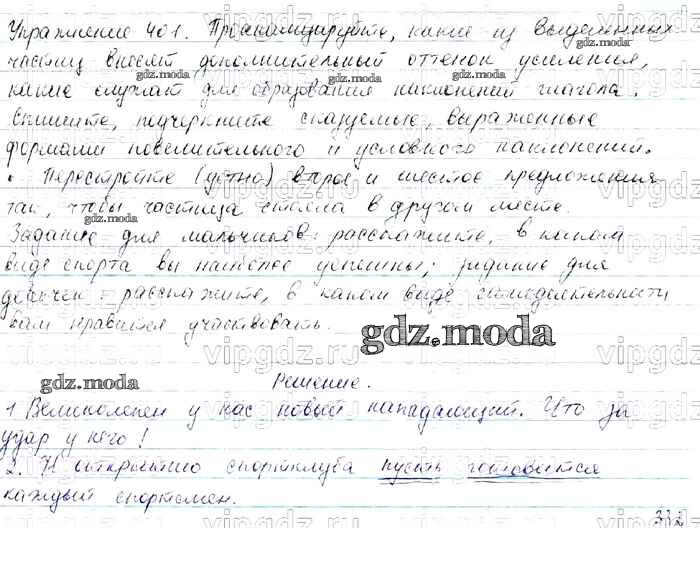 Упражнение 401. Проанализируйте, какие из выделенных
частиц вносят дополнительный оттенок усиления,
какие служат для образования наклонений глагола.
Спишите, подчеркните сказуемые, выраженные
формами повелительного и условного наклонений.
• Перестройте (устно) второе и шестое предложения
так, чтобы частица стояла в другом месте.
Задание для мальчиков: расскажите, в каком
виде спорта вы наиболее успешны; задание для
девочек - расскажите, в каком виде самодеятельности
вам нравится участвовать.
gdz.moda
Решение.
1 Великолепен у нас новый нападающий. Что за
удар у него!
2. К открытию спортклуба пусть готовится
каждый спортсмен.
332